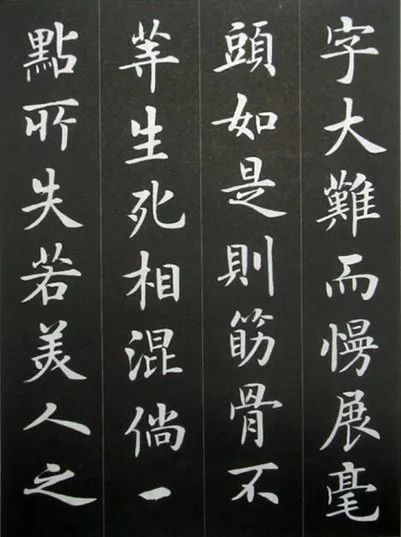 字大難而慢展毫
頭如是則筋骨不
等生死相混倘一
點所失若美人之